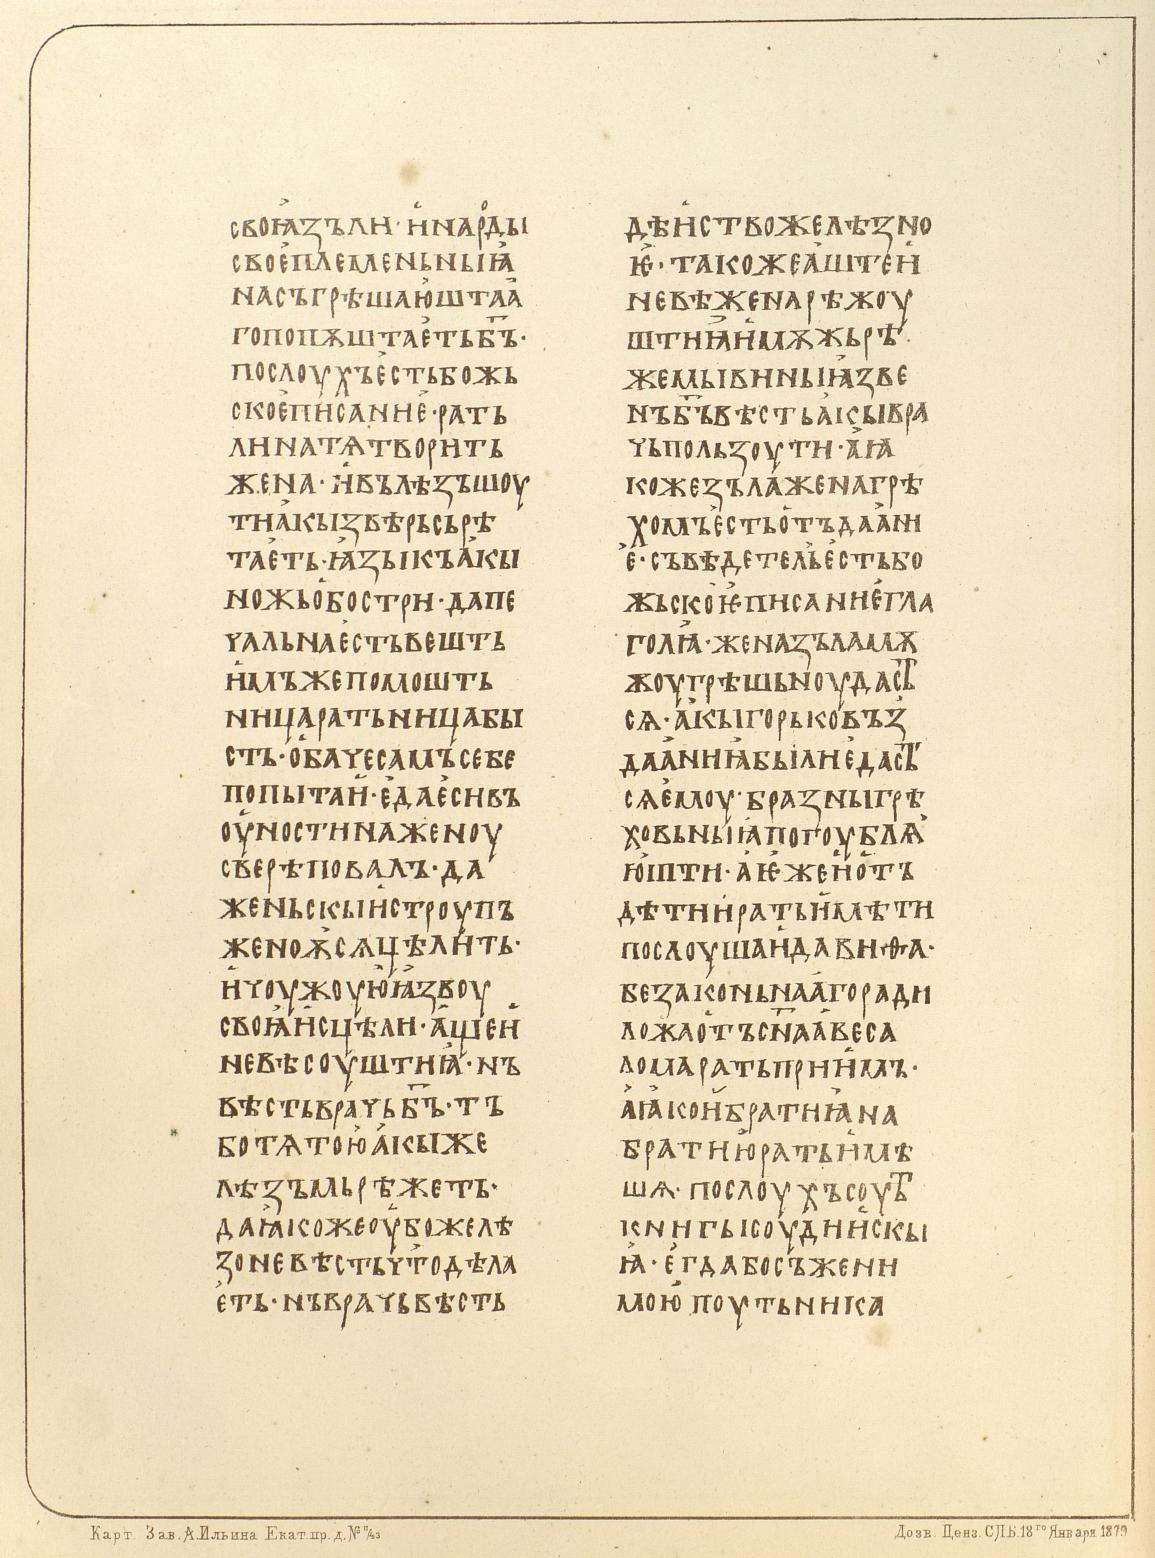 своꙗзъли· и҆нар҆ды
своє҆племеньныꙗ҆
насъгрѣшаю҆штаа҆
гопопѫштає҆тьб҃ъ·
послоухъє҆стьбожь
скоє҆пи҆сание҆·рать
линатѧтворить
жена· и҆вълѣзъшоу
тиа҆кызвѣрьсьрѣ
тає҆ть·ꙗ҆зыкъа҆кы
ножьо҆бостри·дапе
чальнає҆стьвешть
и҆мъжепомошть
ницаратьницабы
сть·о҆бачесамъсебе
попытаи҆·є҆даєсивъ
оу҆ностинаженоу
сверѣповалъ·да
женьскыи҆строупъ
женоѭ҆сѧцѣлить·
и҆чоужоую҆ꙗ҆звоу
своꙗ҆и҆сцѣли·а҆щеи҆
невѣсоу҆штиꙗ҆·нъ
вѣстьврачьб҃ъ·тъ
ботѧтою҆а҆кыже
лѣзъмьрѣжеть·
даꙗ҆кожеоу҆божелѣ
зоневѣстьчтодѣла
є҆ть·нъврачьвѣсть
дѣи҆ствожелѣзно
ѥ҆·такожеа҆штеи҆
невѣженарѣжоу
штиꙗ҆и҆мѫжьрѣ·
жемывиныꙗ҆зве
нъб҃ъвѣстьа҆кывра
чьпользоути·а҆ꙗ
кожезъла҆женагрѣ
хомъє҆стьо҆тъдаа҆ни
є҆·съвѣдетель є҆стьбо
жьскоѥ҆писаниє҆гла
голꙗ҆·женазъламѫ
жоугрѣшьноудаст҃ь
сѧ·а҆кыгорьковъз
даа҆ниꙗ҆былиє҆даст҃ь
сѧє҆моу·бразныгрѣ
ховьныꙗ҆погоублѧ
ю҆шти·а҆ѥ҆жеи҆о҆тъ
дѣтии҆ратьи҆мѣти
послоушаи҆давиѳа·
безаконьнаа҆горади
ложао҆тъсн҃аа҆веса
ломаратьприи҆мъ·
а҆ꙗ҆кои҆братиꙗ҆на
братию҆ратьи҆мѣ
шѧ· послоухъсоут҃ь
книгысоу҆дии҆скы
ꙗ҆·є҆гдабосъжени
мою҆поутьника
Карт. Зав. А. Ильина Екат. пр. д. №
Дозв. Ценз. СПБ. 18го Января 1879